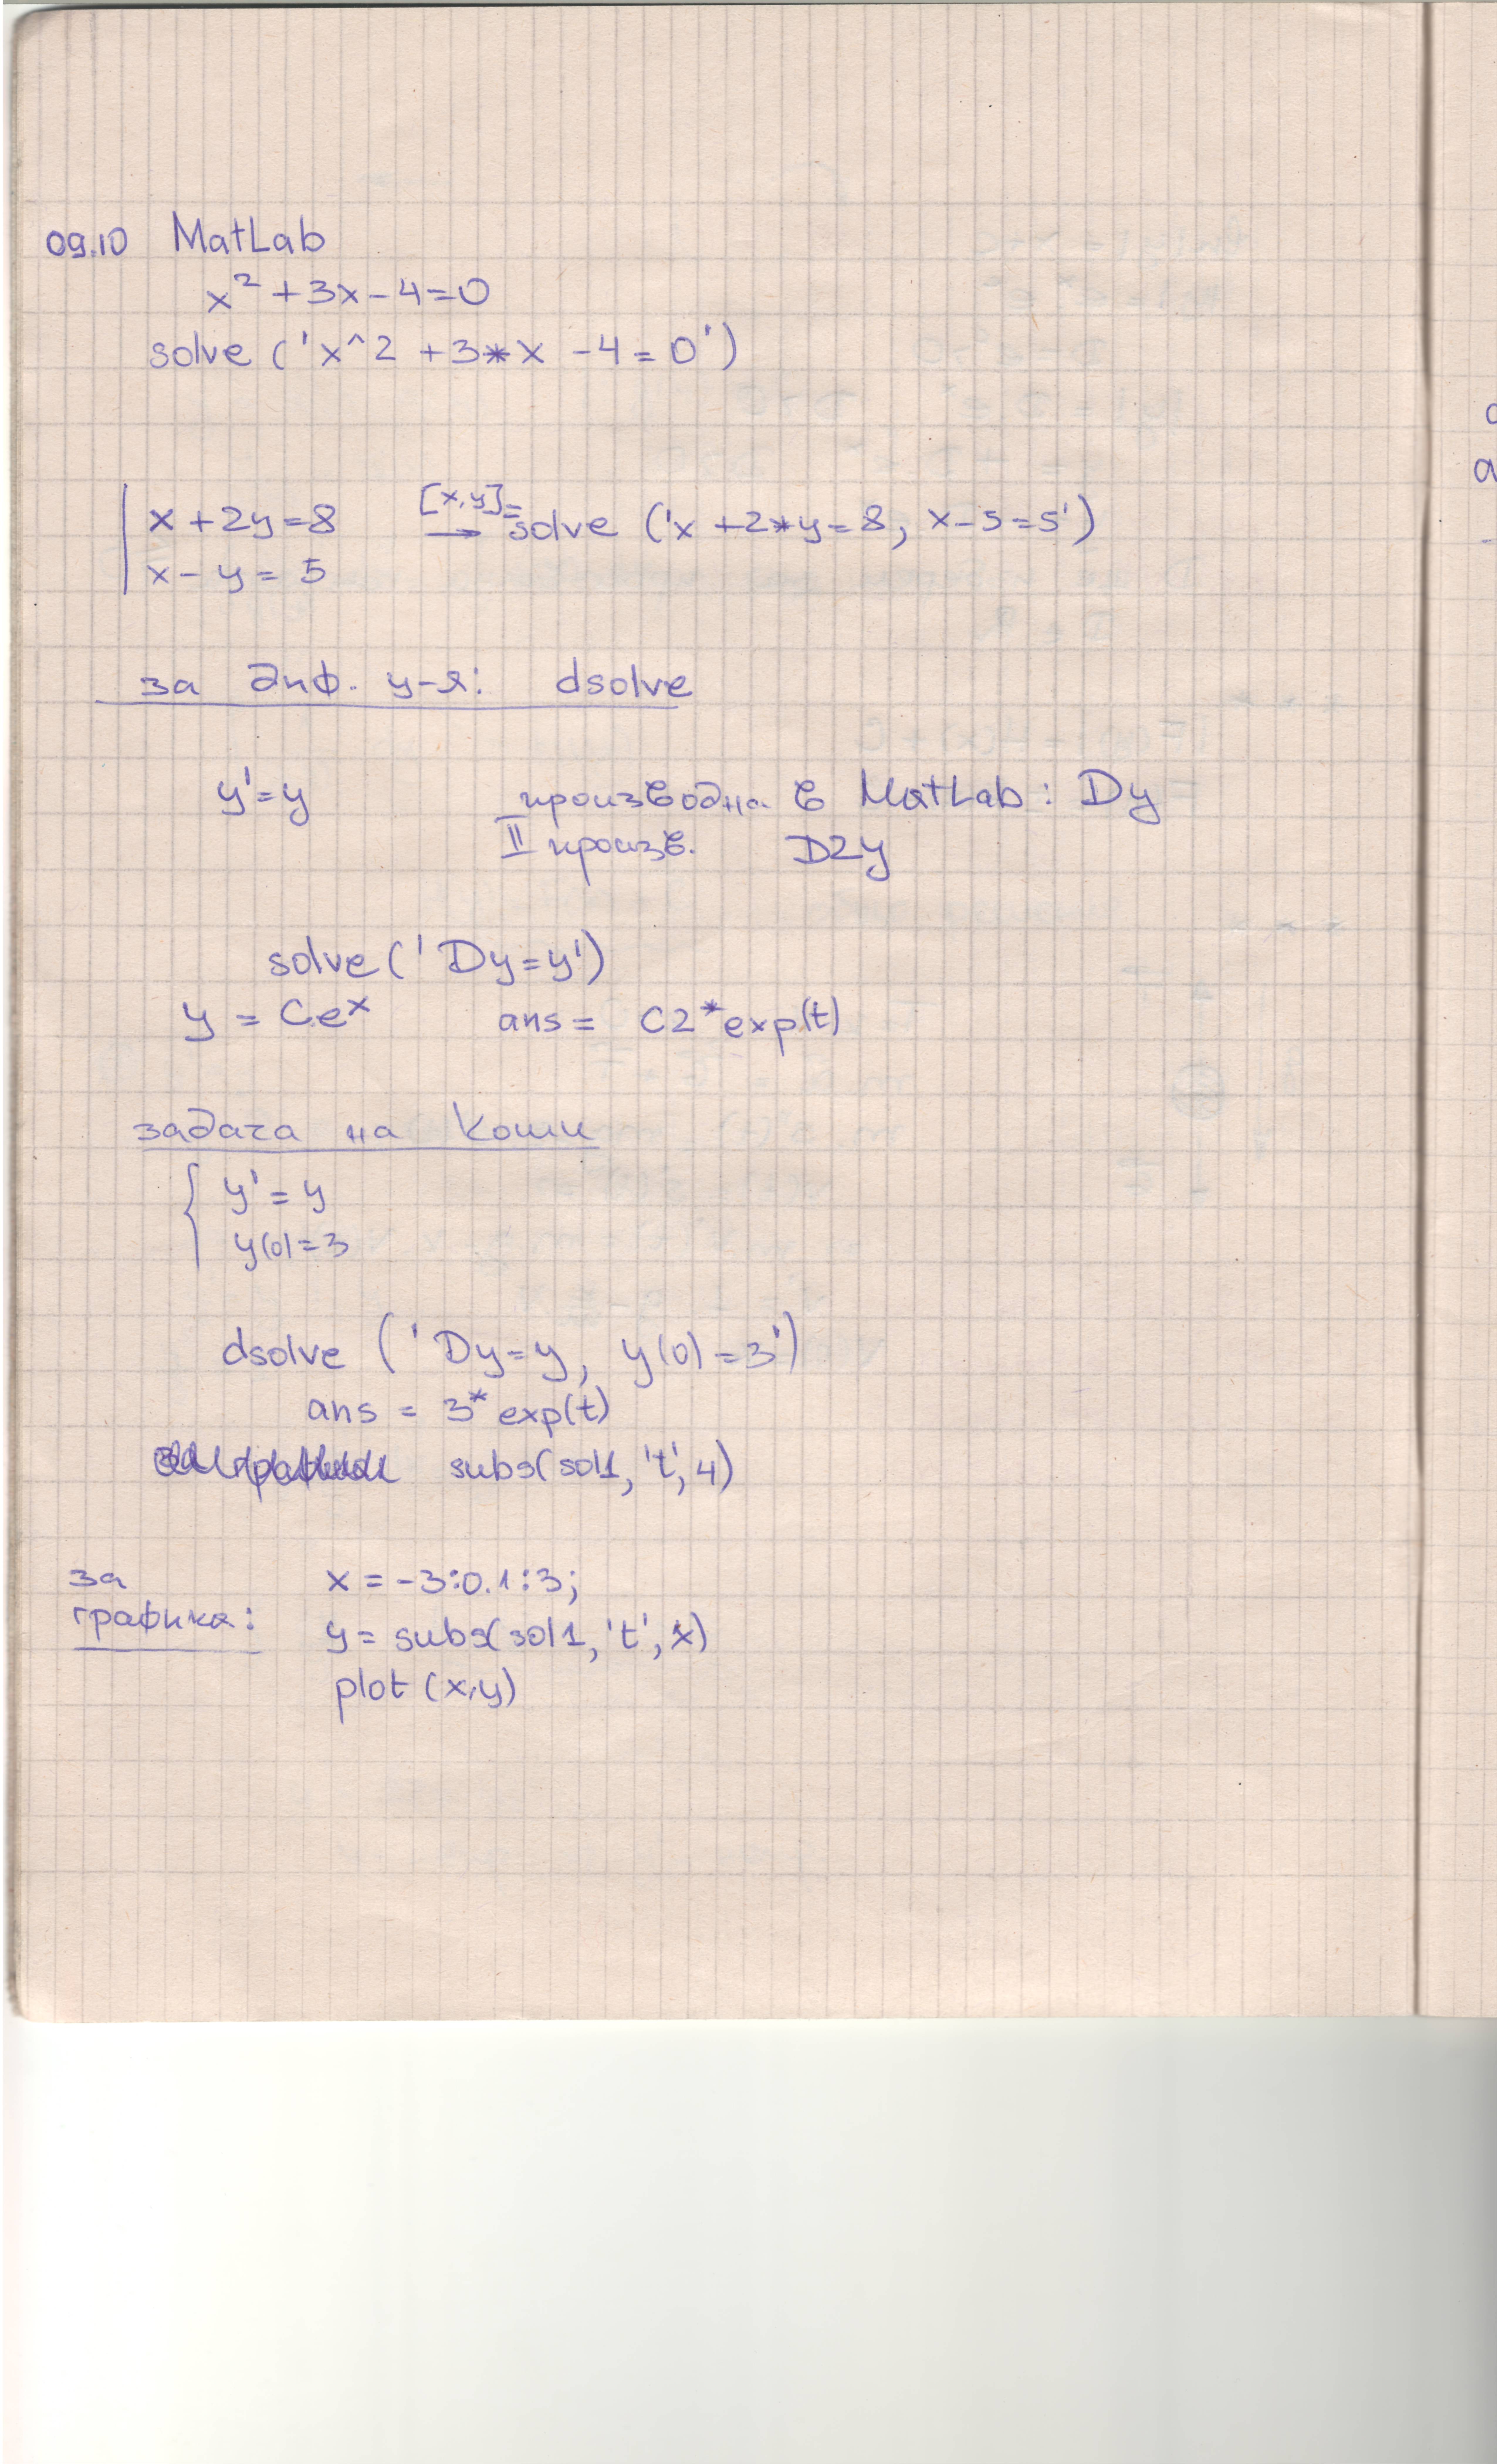 09.10 MatLab
x² + 3x - 4 = 0
solve ('x^2 + 3*x - 4 = 0')
x + 2y = 8 → [x,y]= solve ('x + 2*y = 8, x - 5 = 5')
x - y = 5
за диф. у-я: dsolve
y' = y I производна в MatLab: Dy
II произв. D2y
solve ('Dy=y')
y = Ce^x ans = C2*exp(t)
задача на Коши
{ y' = y
y(0) = 3
dsolve ('Dy=y, y(0)=3')
ans = 3*exp(t)
subs(sol1, 't', 4)
за x = -3:0.1:3;
графика: y = subs(sol1, 't', x)
plot (x,y)